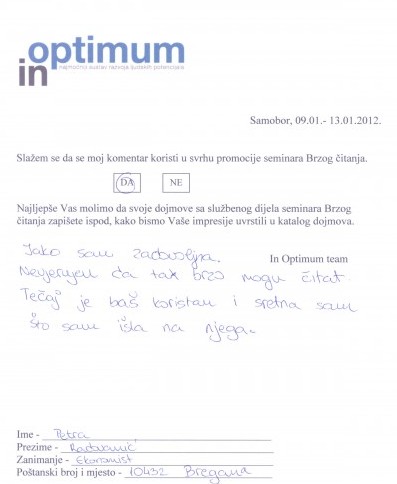 in optimum
Samobor, 09.01.- 13.01.2012.
Slažem se da se moj komentar koristi u svrhu promocije seminara Brzog čitanja.
DA NE
Najljepše Vas molimo da svoje dojmove sa službenog dijela seminara Brzog
čitanja zapišete ispod, kako bismo Vaše impresije uvrstili u katalog dojmova.
In Optimum team
Jako sam zadovoljna.
Nevjerujem da tak brzo mogu čitat.
Tečaj je baš koristan i sretna sam
što sam išla na njega.
Ime - Petra
Prezime -
Zanimanje - Ekonomist
Poštanski broj i mjesto - 10432 Bregana